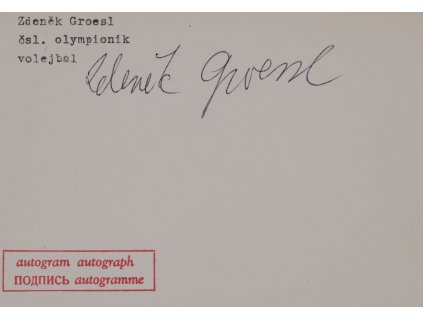 Zdeněk Groesl
čsl. olympionik
volejbal
Zdeněk Groessl
autogram autograph
ПОДПИСЬ autogramme